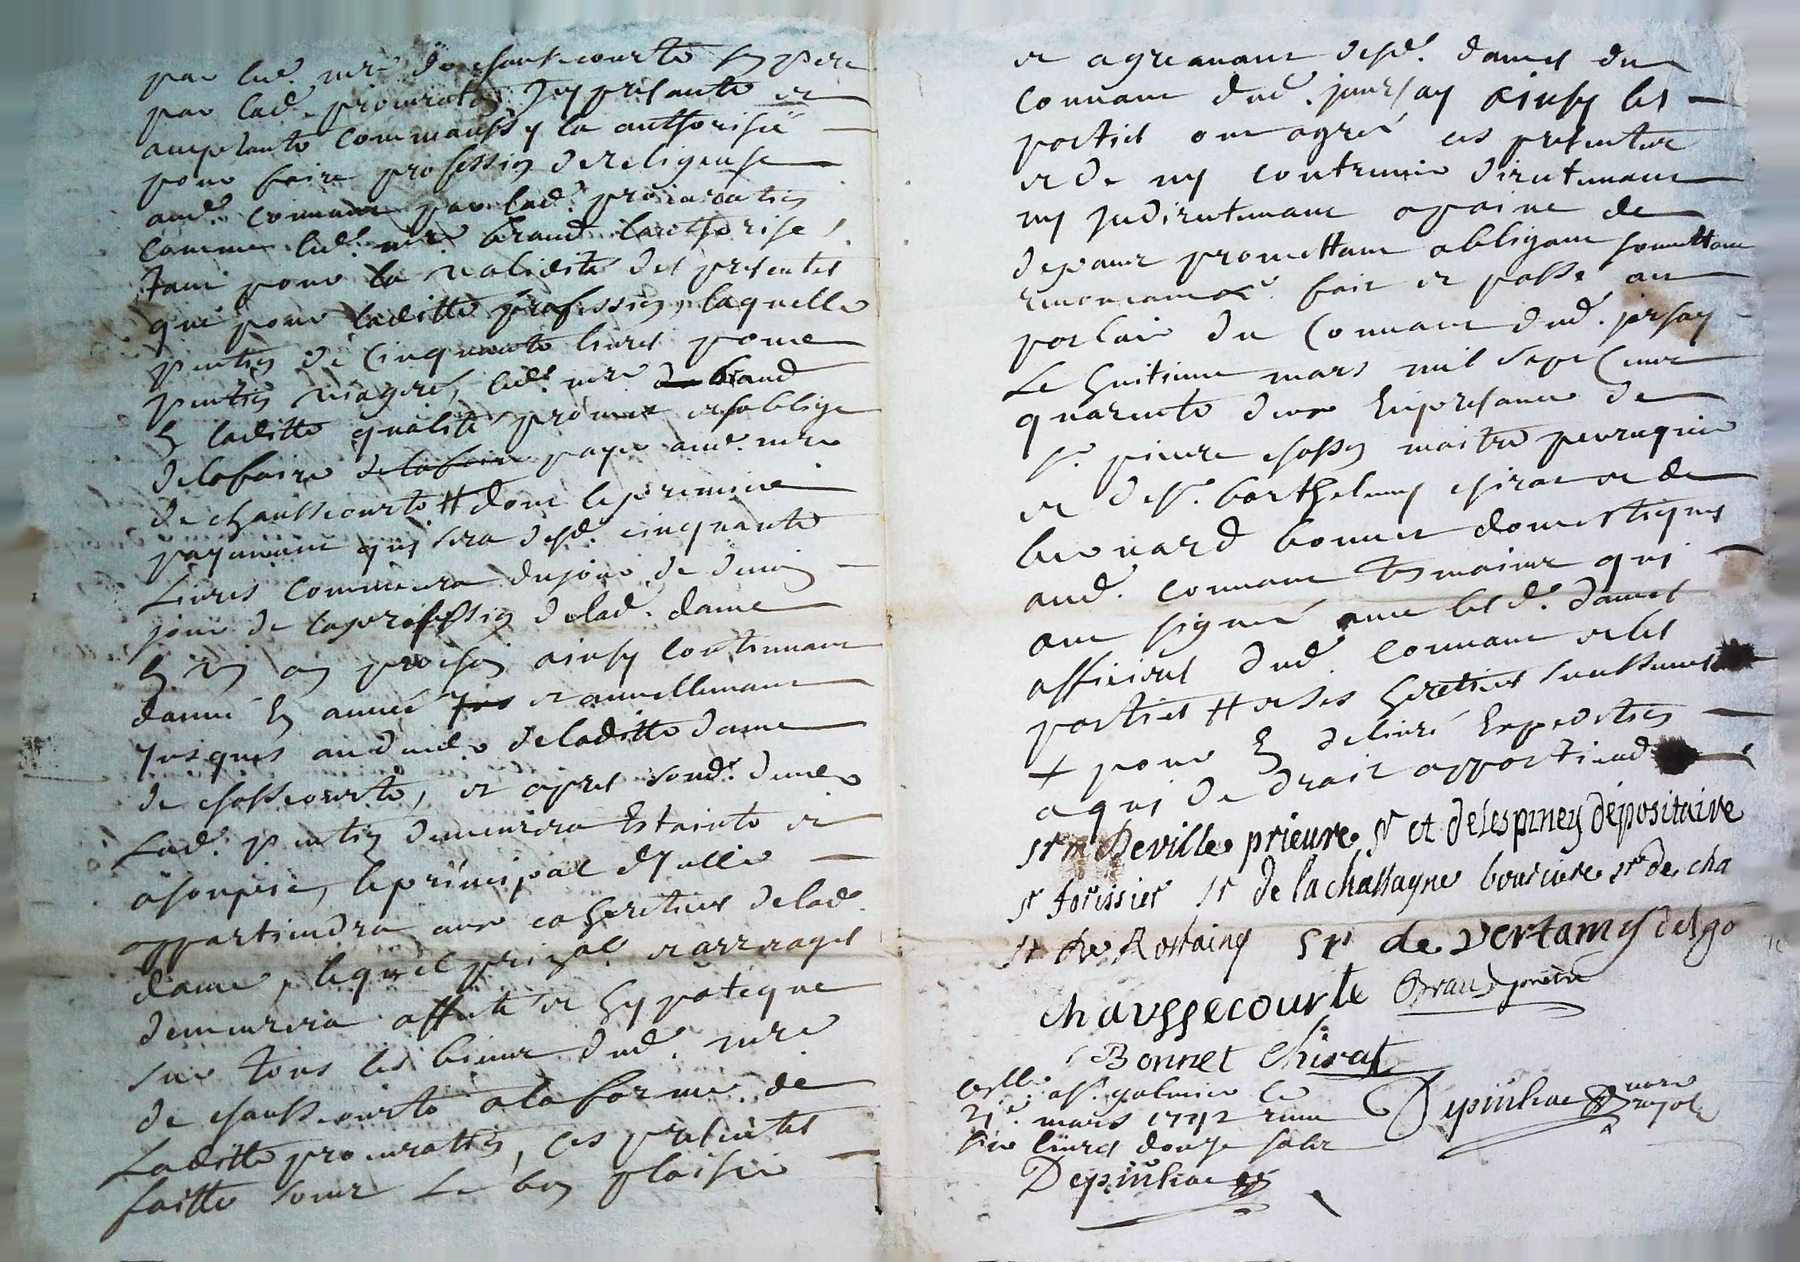 par led. mre de chaussecourte son pere
par lad. procuration Icy presante et
acceptante comme aussy la authorisée
pour faire profession de religieuse
aud. couvant par lad. procuration
comme led. mre Brand l'authorise,
tant pour la validité des presentes
que pour laditte profession, laquelle
pention de cinquante livres pour
pention viagere, led. mre Brand
En laditte qualité promet et soblige
de la faire payer aud. mre
de chaussecourte # dont le premier
payement quy sera desd. cinquante
Livres commencera du jour de
jour de la profession de lad. dame
En un an prochain ainsy continuant
d'année En année et annuellement
jusques au deces de laditte dame
de chossecourte, et apres sond. deces
Lad. pention demeurera Estainte et
asoupie, le principal d'Icelle
appartiendra aux cohéretiers de lad.
dame, lequel prinpal et arrerages
demeurera affecté et hypotequé
sur tous les biens dud. mre
de chaussecourte a la forme de
Laditte procuration, ces presentes
faitte sous Le bon plaisir
et agreement desd. dames du
couvant dud. joursay ainsy les
parties ont agréé ces presentes
et de ny contrevenir directement
ny Indirectement a paine de
depans promettant obligant soumettant
renonceant &c. fait et passé au
parloir du Couvant dud. jorsay
Le huitieme mars mil sept Cent
quarente deux En presance de
sr. pierre chosson maitre perruquier
et de sr. barthelemy chirat et de
bernard bonnet domestiques
aud. couvant temoins qui
ont signé avec lesd. dames
officieres dud. couvant et les
parties # et ses heretiers successeurs
+ pour En delivré Expedition
a qui de droit appartiendra
sr m Deville prieure sr et delespiney dépositaire
sr forissier sr de la chassagne boursiere sr de cha
sr de Rostaing sr de vertamy delgo
chaussecourte Brand pretre
Bonnet Chirat
Collé. a st. galmier le
21e. mars 1742 reçu
six livres douze sols
Depinhac nore royal
Depinhac